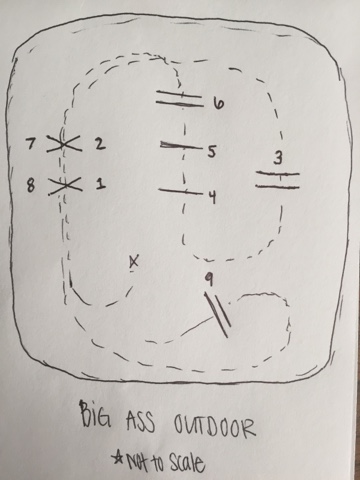 6
7 2
5
3
8 1
4
x
9
BIG ASS OUTDOOR
☆ NOT to SCALE